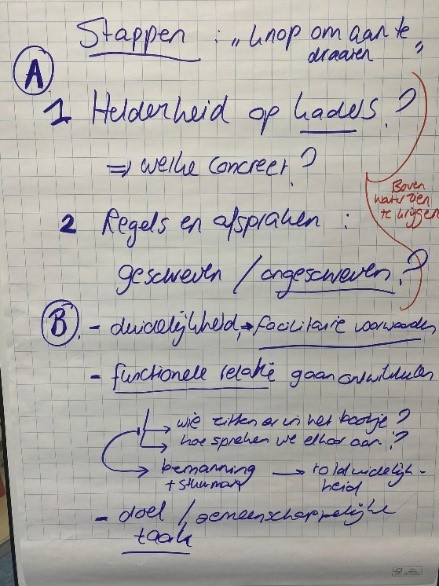 Stappen : „knop om aan te
draaien"
A
1 Helderheid op kaders ?
⇒ welke concreet ?
2 Regels en afspraken :
geschreven / ongeschreven ?
Boven
water zien
te krijgen
B - duidelijkheid → facilitaire voorwaarden
- functionele relatie gaan ontwikkelen
→ wie zitten er in het bootje ?
→ hoe spreken we elkaar aan ?
→ bemanning → rolduidelijk-
+ stuurman heid
- doel / gemeenschappelijke
taak